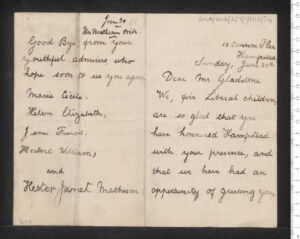 GLA/GGA/2/1/
18 Cannon Place
Hampstead
Sunday, June 30th
Dear Mr Gladstone
We, six Liberal children,
are so glad that you
have honoured Hampstead
with your presence, and
that we have had an
opportunity of greeting you,
June 30
Good Bye from your
youthful admirers, who
hope soon to see you again
Marie Cécile,
Helen Elizabeth,
James Francis,
Herbert William,
and
Hester Jarrat Matheson